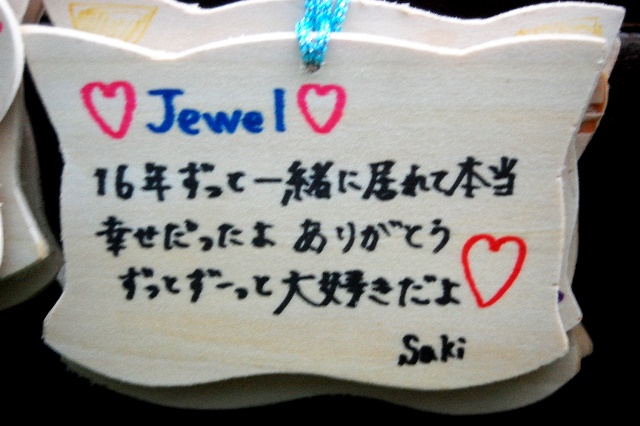 Jewel
16年ずっと一緒に居れて本当
幸せだったよ ありがとう
ずっとずーっと大好きだよ
Saki